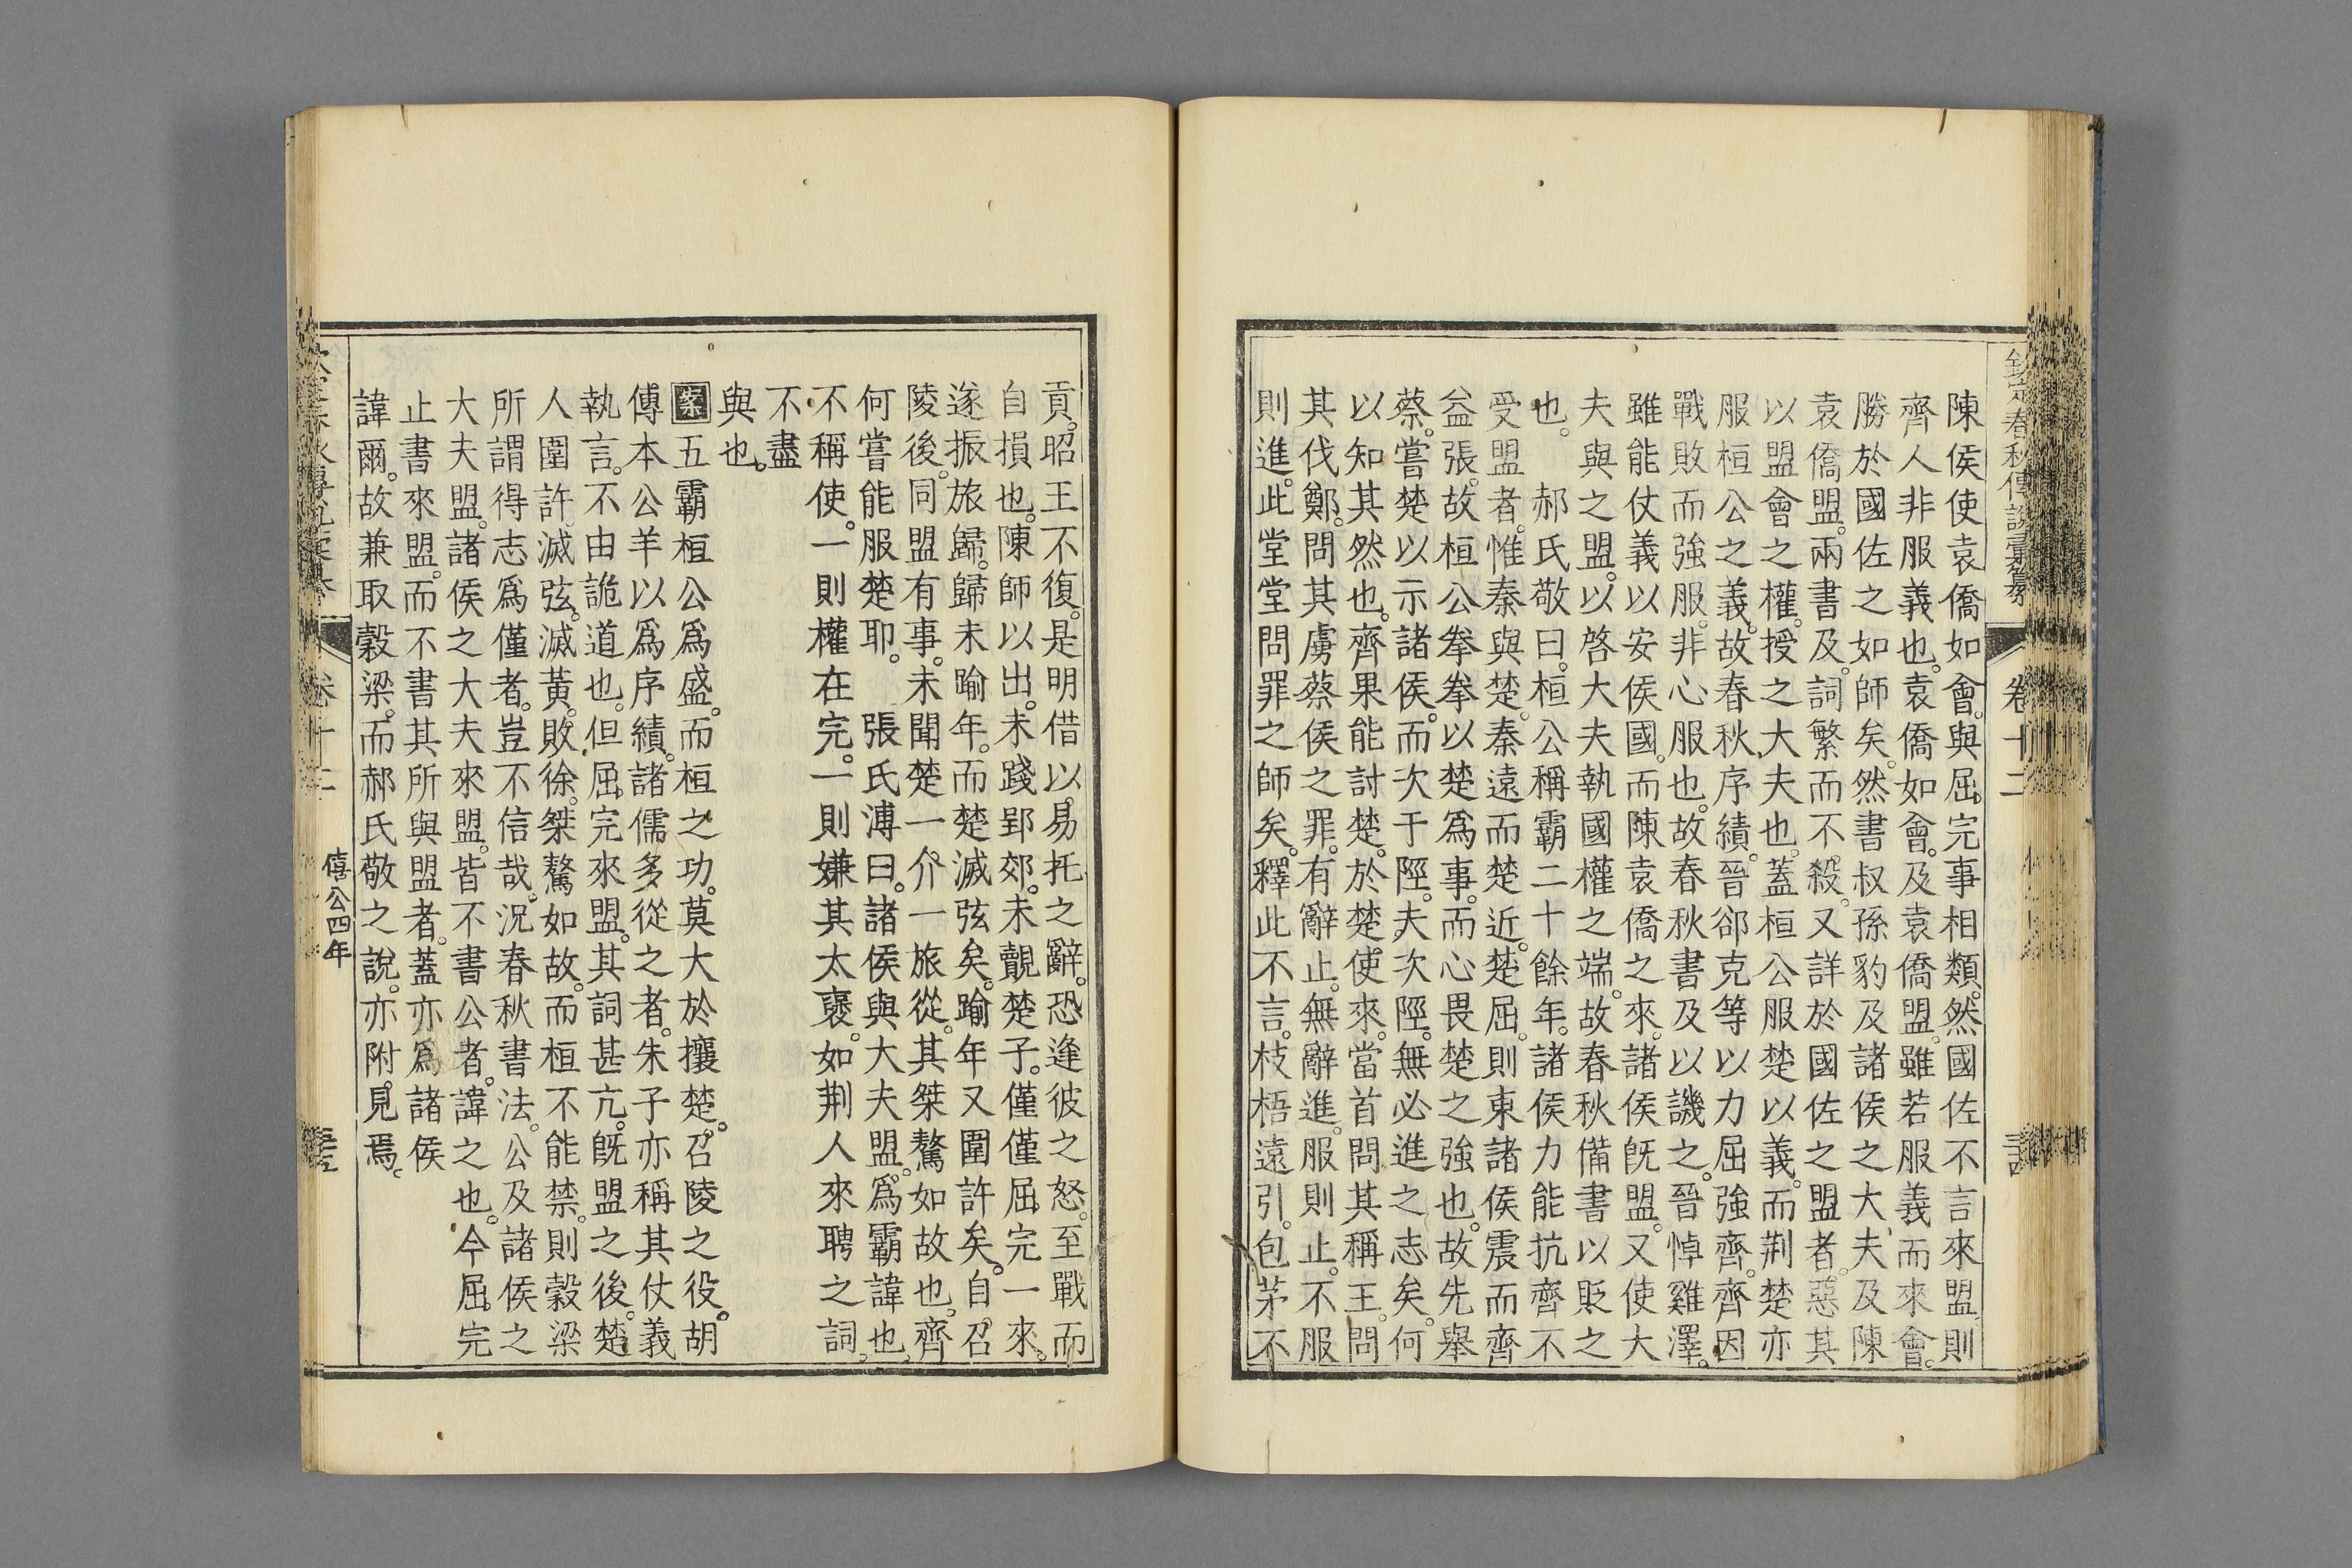 陳侯使袁僑如會。與屈完事相類。然國佐不言來盟。則
齊人非服義也。袁僑如會。及袁僑盟。雖若服義而來會。
勝於國佐之如師矣。然書叔孫豹及諸侯之大夫及陳
袁僑盟。兩書及。詞繁而不殺。又詳於國佐之盟者。惡其
以盟會之權。授之大夫也。蓋桓公服楚以義。而荆楚亦
服桓公之義。故春秋序績。晉郤克等以力屈強齊。齊因
戰敗而強服。非心服也。故春秋書及以譏之。晉悼雞澤。
雖能仗義以安侯國。而陳袁僑之來。諸侯旣盟。又使大
夫與之盟。以啓大夫執國權之端。故春秋備書以貶之
也。 郝氏敬曰。桓公稱霸二十餘年。諸侯力能抗齊不
受盟者。惟秦與楚。秦遠而楚近。楚屈。則東諸侯震而齊
益張。故桓公拳拳以楚爲事。而心畏楚之強也。故先舉
蔡。嘗楚以示諸侯。而次于陘。夫次陘。無必進之志矣。何
以知其然也。齊果能討楚。於楚使來。當首問其稱王。問
其伐鄭。問其虜蔡侯之罪。有辭止。無辭進。服則止。不服
則進。此堂堂問罪之師矣。釋此不言。枝梧遠引。包茅不
欽定春秋傳說彙纂
卷十二
貢。昭王不復。是明借以易托之辭。恐逢彼之怒。至戰而
自損也。陳師以出。未踐郢郊。未覿楚子。僅僅屈完一來。
遂振旅歸。歸未踰年。而楚滅弦矣。踰年又圍許矣。自召
陵後。同盟有事。未聞楚一介一旅從。其桀驁如故也。齊
何嘗能服楚耶。 張氏溥曰。諸侯與大夫盟。爲霸諱也。
不稱使。一則權在完。一則嫌其太褎。如荆人來聘之詞。
不盡
與也。
案五霸桓公爲盛。而桓之功。莫大於攘楚。召陵之役。胡
傳本公羊以爲序績。諸儒多從之者。朱子亦稱其仗義
執言。不由詭道也。但屈完來盟。其詞甚亢。旣盟之後。楚
人圍許。滅弦。滅黃。敗徐。桀驁如故。而桓不能禁。則穀梁
所謂得志爲僅者。豈不信哉。況春秋書法。公及諸侯之
大夫盟。諸侯之大夫來盟。皆不書公者。諱之也。今屈完
止書來盟。而不書其所與盟者。蓋亦爲諸侯
諱爾。故兼取穀梁。而郝氏敬之說。亦附見焉。
卷十二
僖公四年